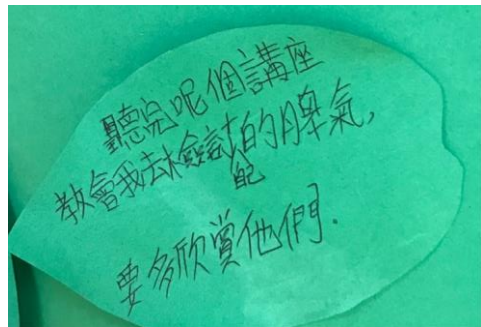 聽完呢個講座
教會我去檢討自己的脾氣,
要多欣賞他們.